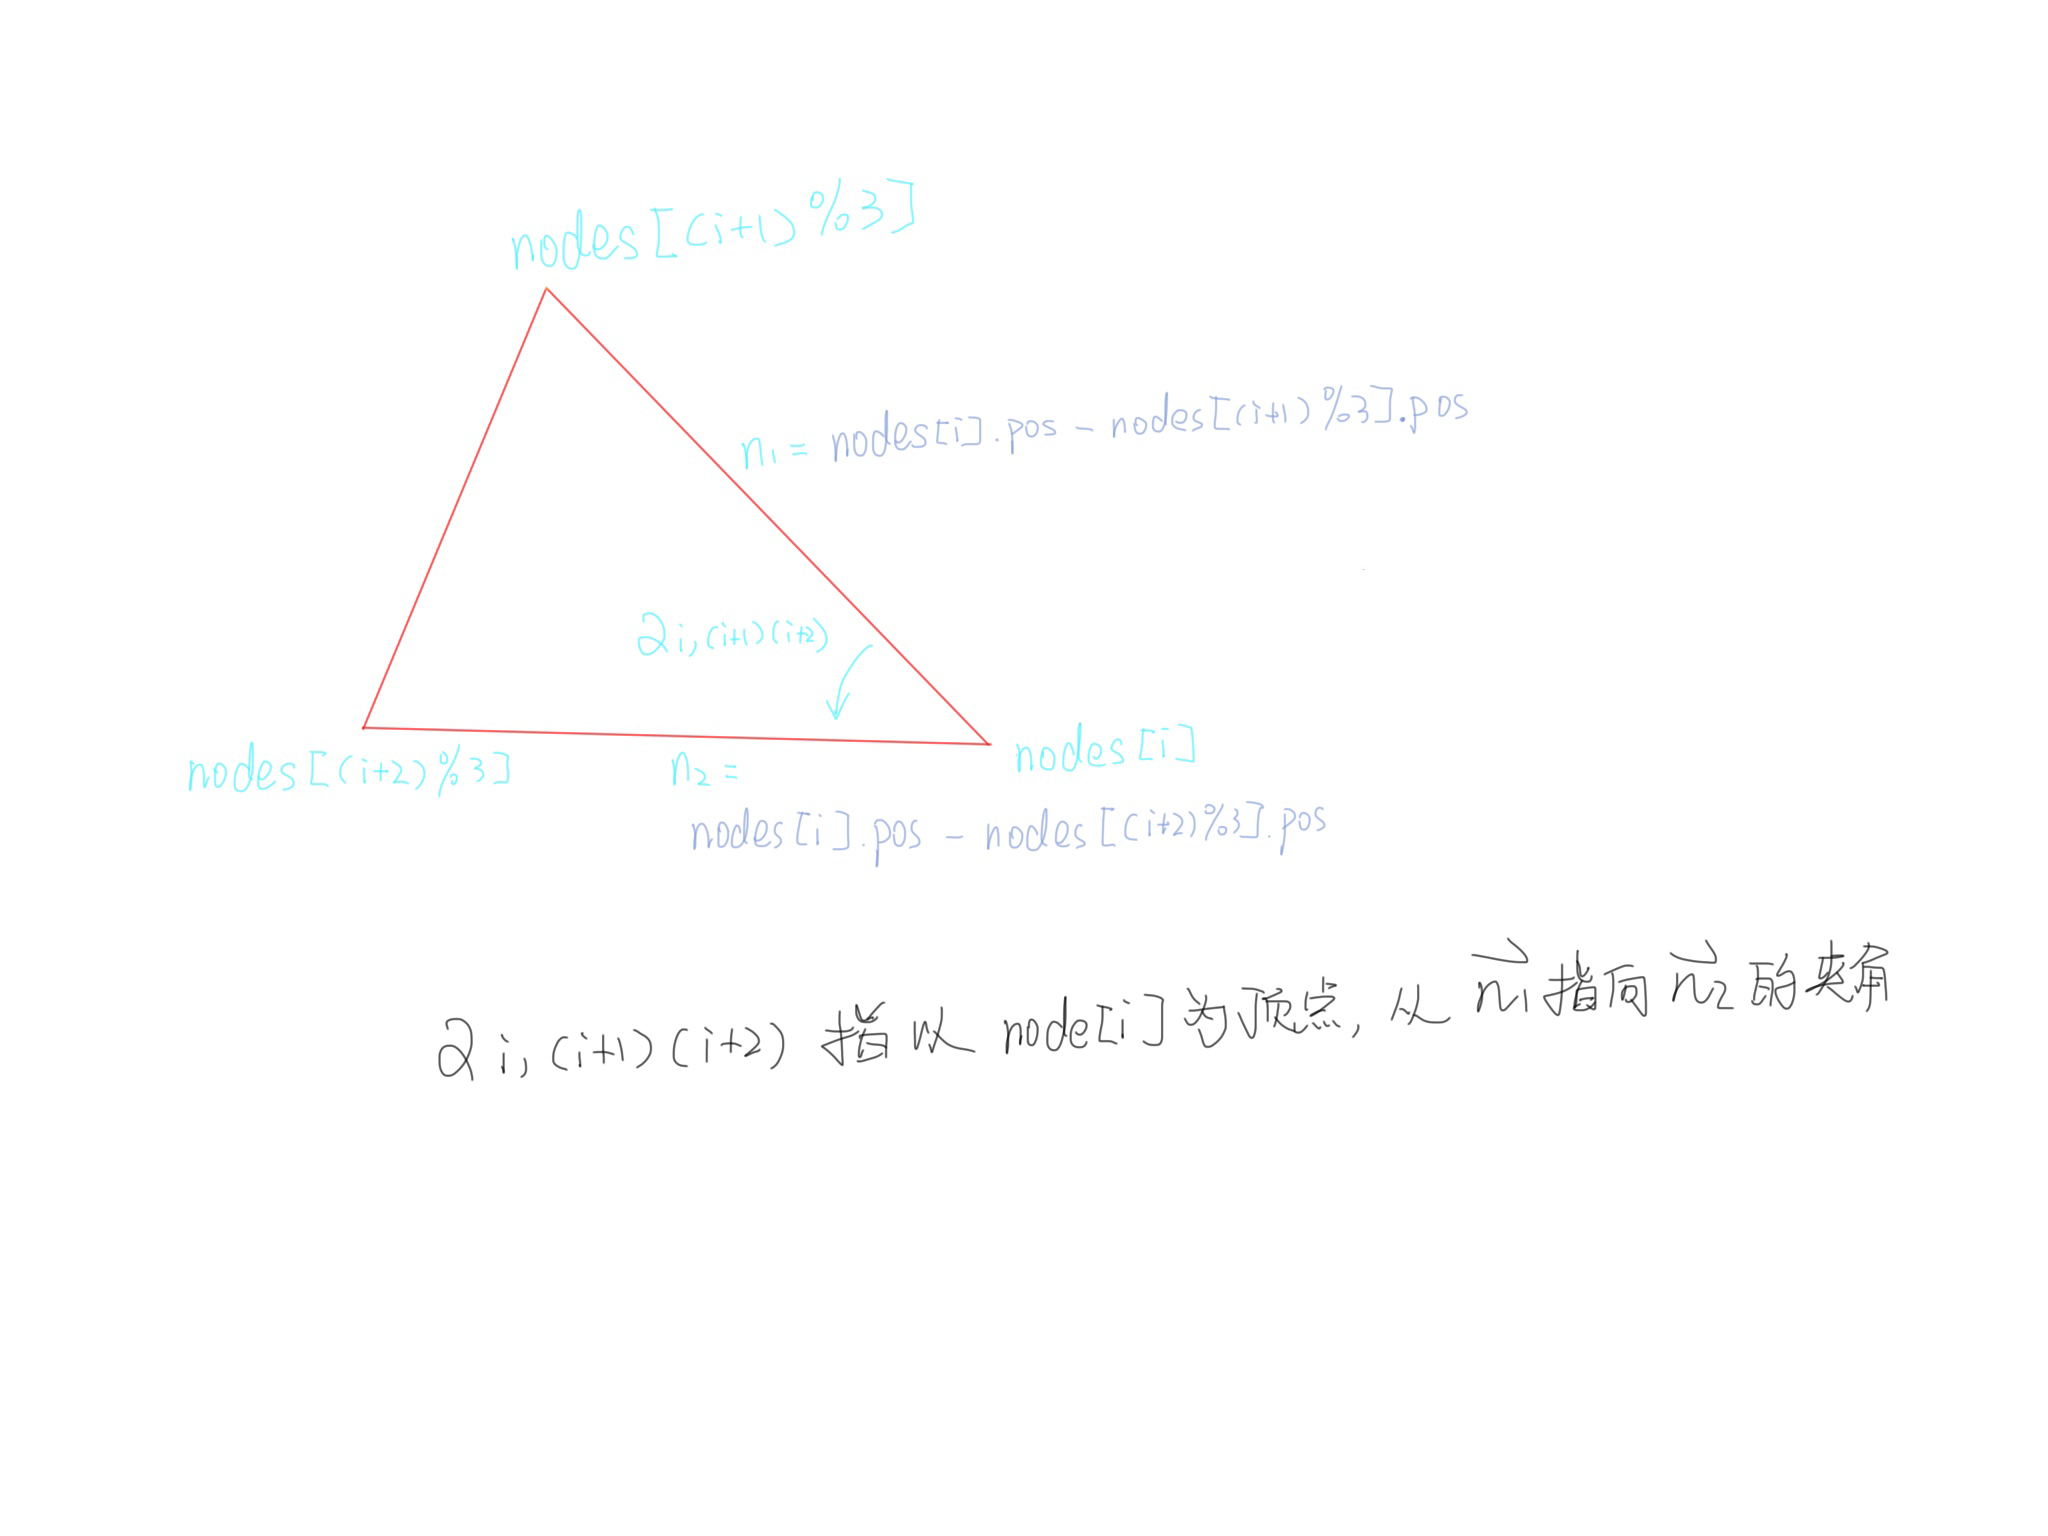 nodes[(i+1)%3]
n1 = nodes[i].pos - nodes[(i+1)%3].pos
2i,(i+1)(i+2)
nodes[i]
nodes[(i+2)%3]
n2 =
nodes[i].pos - nodes[(i+2)%3].pos
2i,(i+1)(i+2) 指以 node[i]为顶点, 从 n1 指向 n2 的夹角